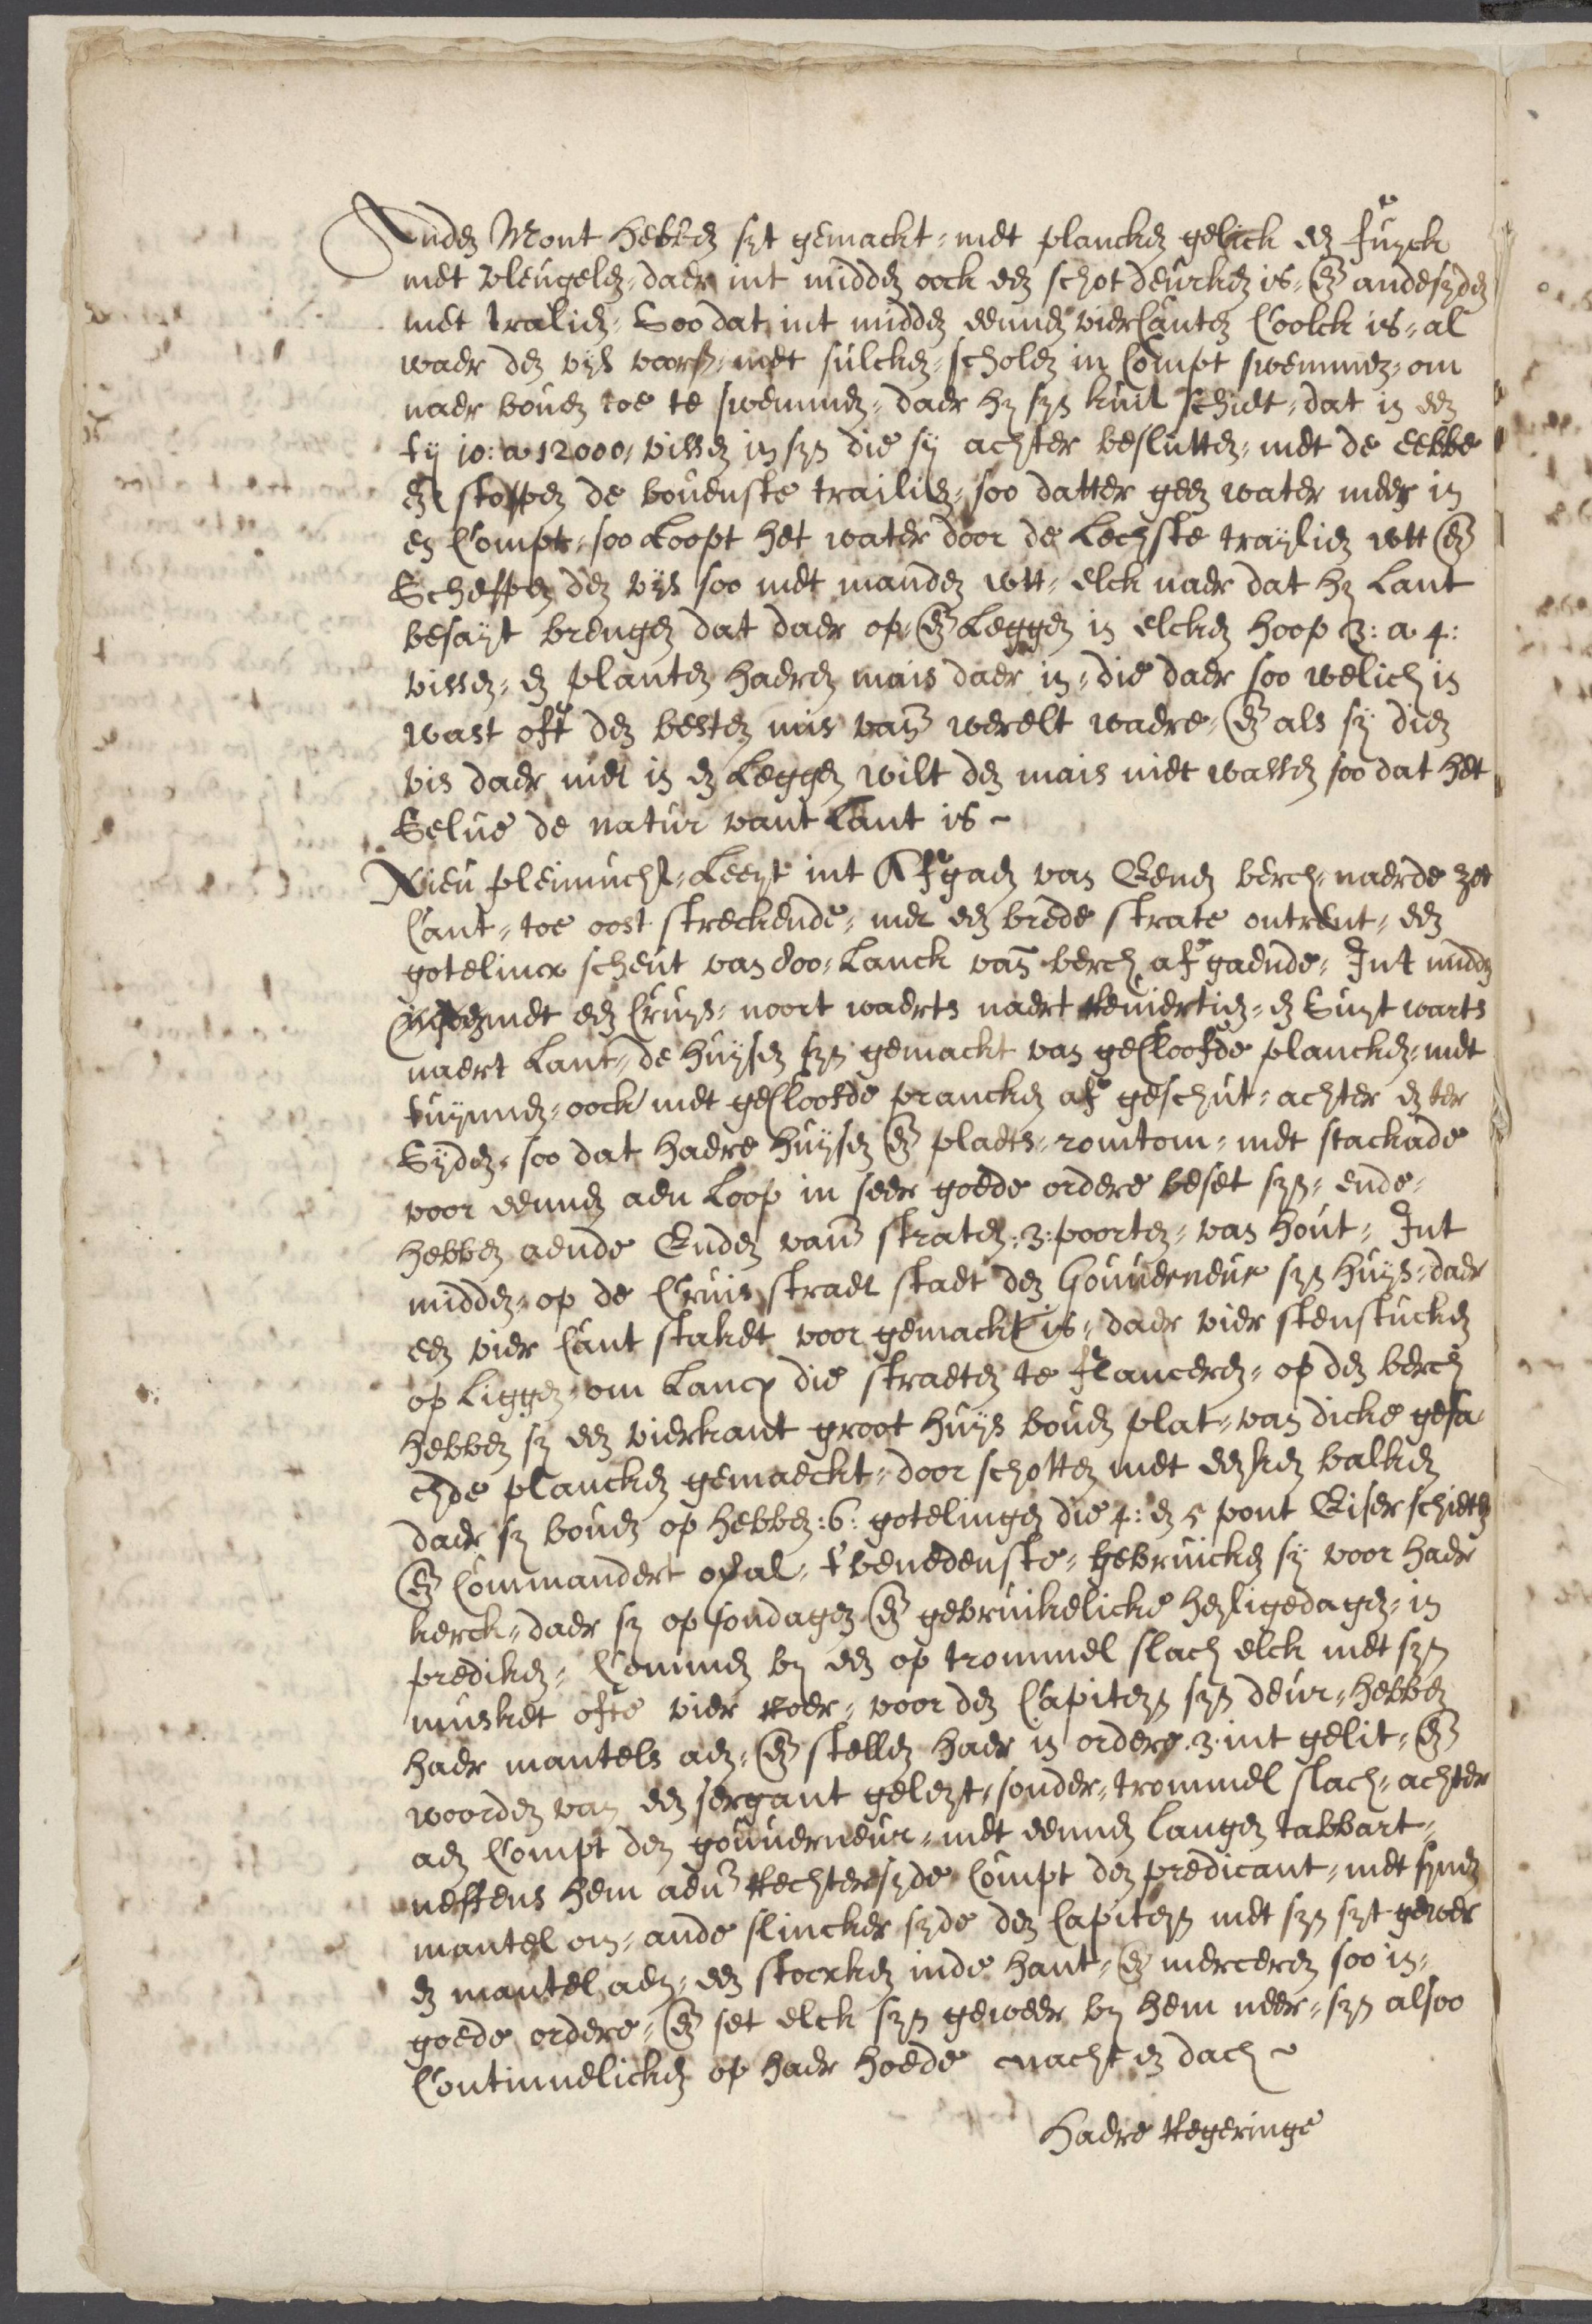 Inden Mont hebben syt gemackt, met plancken gelick een fuyck
met vleugelen, daer int midden oock een schot deurken is, en andesyden
met tralien, Soo dat int midden eennen vierCanten Coolck is, al
waer den vis voors: met sulcken, scholen in Compt swemmen, om
naer boven toe te swemmen, daer hy syn kuit schiet, dat in een
ty 10: a 12000, vissen in syn die sy achter beslutten, met de eebbe
en stoppen de bovenste trailien, soo datter geen water meer in
en Compt, soo Loopt het water door de Lechste traylien wtt en
Scheppen den vys soo met manden wtt, elck naer dat hy Lant
besayt brengen dat daer op, en Leggen in elcken hoop 3: a 4:
vissen, en planten haeren mais daer in, die daer soo welich in
wast oft den besten mis vande werelt waere, en als sy dien
vis daer niet in en Leggen wilt den mais niet wassen soo dat het
Selve de natur vant Lant is ~
Nieu pleimucht, Leeyt int Afgaen van Eenen berch, naerde zee
Cant, toe oost streckende, met een brede strate ontrent, een
gotelincx scheut van 800, Lanck vanden berch afgaende, Int midden
met een Cruys, noort waerts naert Reviertien, en Suyt warts
naert Lant, de huysen syn gemackt van geCloofde plancken, met
tuynnen, oock met geCloofde prancken af geschut, achter en ter
Syden, soo dat haere huysen en plaets, romtom, met stackade
voor eennen aen Loop in seer goede ordere beset syn, ende,
hebben aende Enden vande straten, 3: poorten, van hout, Int
midden, op de Cruis straet staet den Gouverneur syn huys, daer
een vier Cant staket voor gemackt is, daer vier stenstucken
op Liggen, om Lancx die straeten te flanceren, op den berch
hebben sy een vierkant groot huys boven plat, van dicke gesa
echde plancken gemaeckt, door schotten met eeyken balken
daer sy boven op hebben: 6: gotelingen die 4: en 5 pont Eiser schieten
en Commandert opal, t'benedenste, gebruicken sy voor haer
kerck, daer sy op sondagen en gebruikelicke heyligedagen, in
prediken, Commen by een op trommel slach elck met syn
musket ofte vier Roer, voor den Capiteyn syn deur, hebben
haer mantels aen, en stellen haer in ordere 3 int gelit, en
woorden van een sergant geleyt, sonder, trommel slach, achter
aen Compt den gouverneur, met eennen langen tabbart,
neffens hem aende Rechtersyde Compt den predicant, met synen
mantel om, ande slincker syde den Capiteyn met syn syt gewer
en mantel aen, een stockxken inde hant, en merceren soo in,
goede ordere, en set elck syn geweer by hem neer, syn alsoo
Continnelicken op haer hoede nacht en dach ~
Haere Regeringe